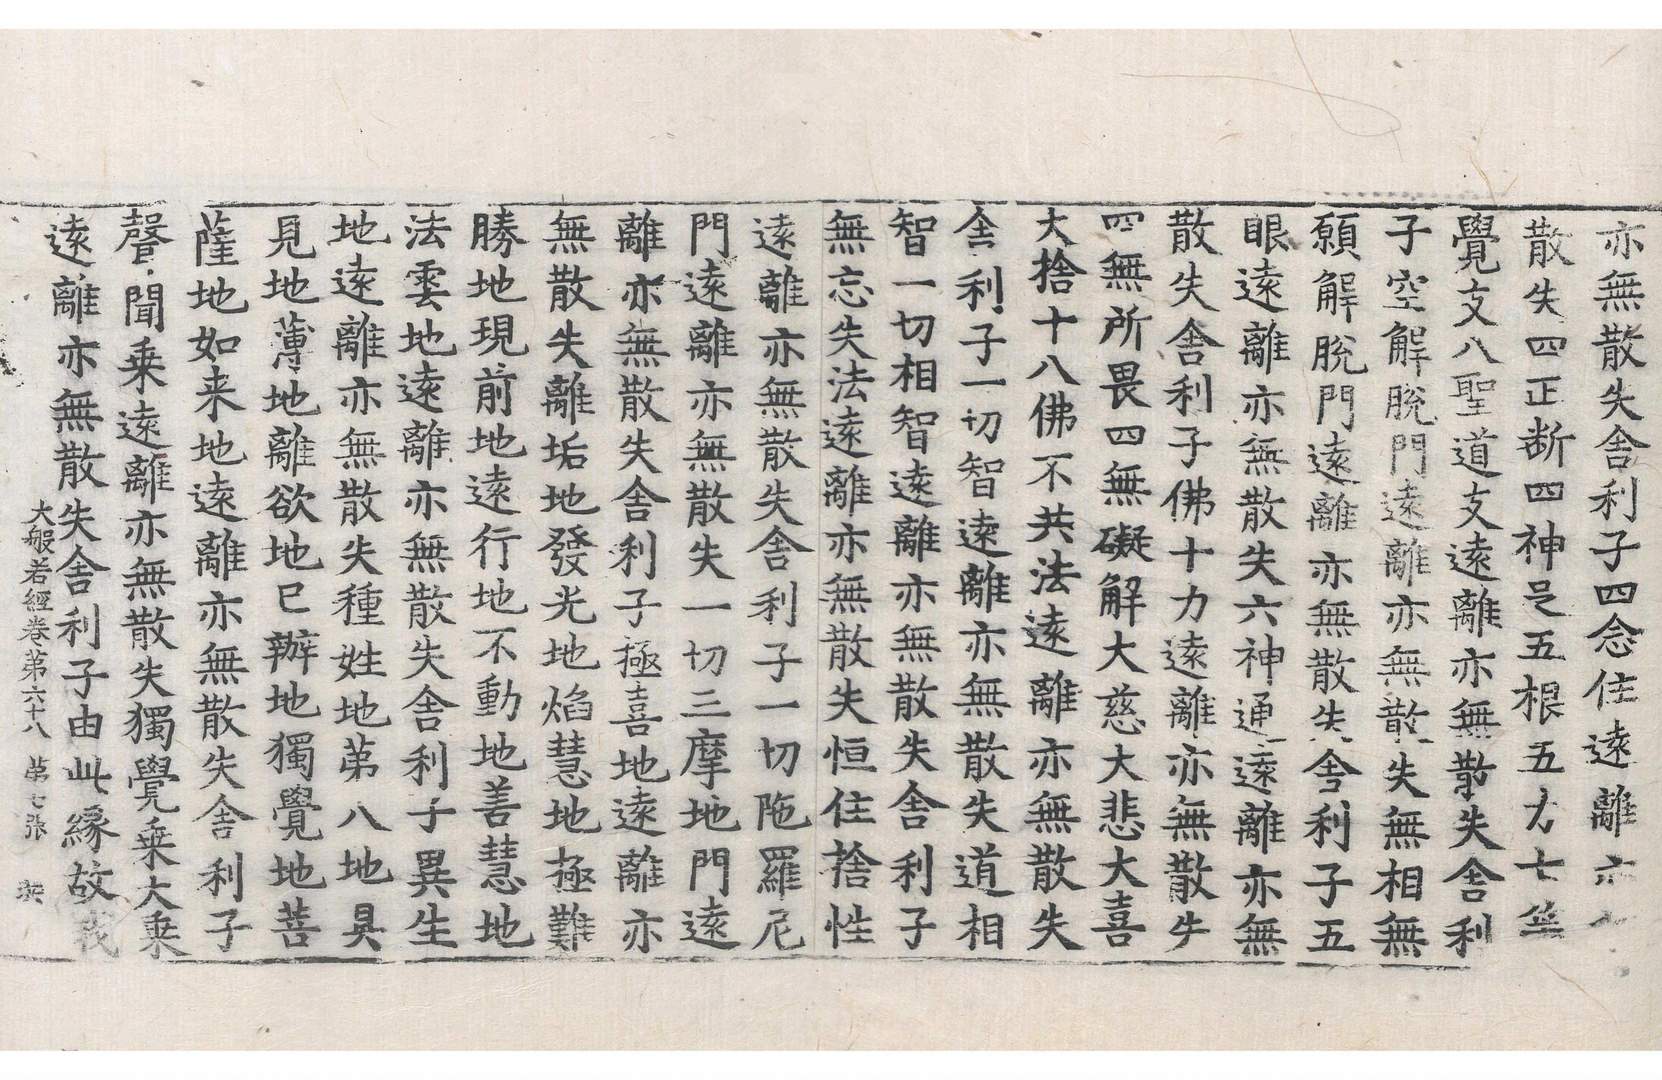 亦無散失舍利子四念住遠離亦
散失四正断四神足五根五力七等
覺支八聖道支遠離亦無散失舍利
子空解脫門遠離亦無散失無相無
願解脫門遠離亦無散失舍利子五
眼遠離亦無散失六神通遠離亦無
散失舍利子佛十力遠離亦無散失
四無所畏四無礙解大慈大悲大喜
大捨十八佛不共法遠離亦無散失
舍利子一切智遠離亦無散失道相
智一切相智遠離亦無散失舍利子
無忘失法遠離亦無散失恒住捨性
遠離亦無散失舍利子一切陁羅尼
門遠離亦無散失一切三摩地門遠
離亦無散失舍利子極喜地遠離亦
無散失離垢地發光地焰慧地極難
勝地現前地遠行地不動地善慧地
法雲地遠離亦無散失舍利子異生
地遠離亦無散失種姓地第八地具
見地薄地離欲地已辦地獨覺地菩
薩地如来地遠離亦無散失舍利子
聲聞乗遠離亦無散失獨覺乗大乗
遠離亦無散失舍利子由此緣故我
大般若經卷第六十八 第七張